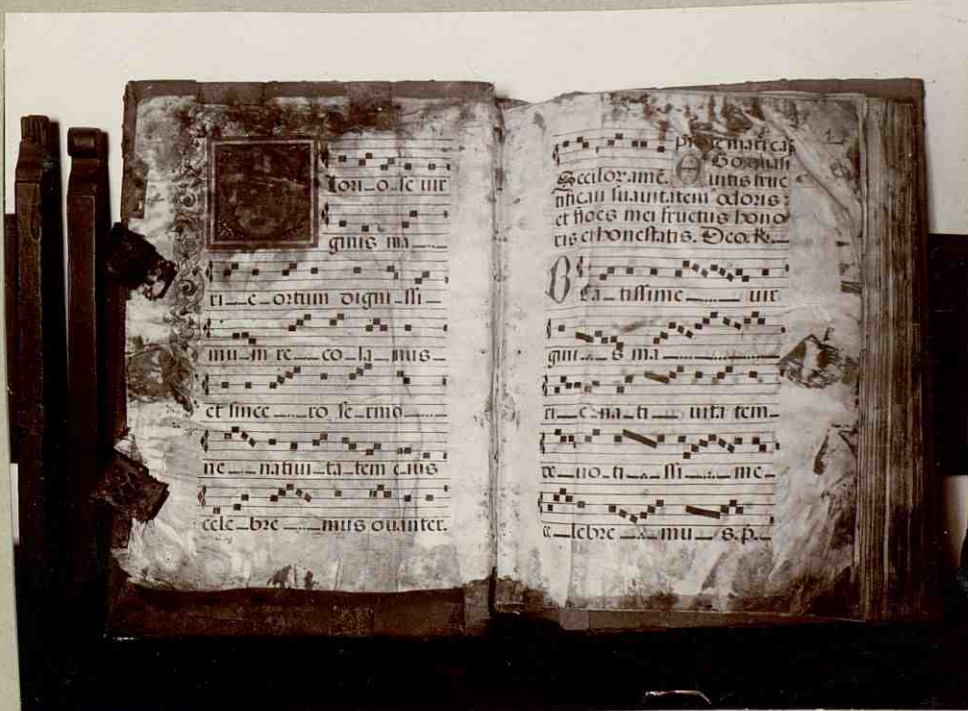 lori_o_se vir
ginis ma
ri_e ortum digni_ssi
mu_m re_co_la_mus
et since_ro se_rmo
ne_nativi_ta_tem eius
cele_bre_mus ovanter.
pro tẽmari.ca
Go quasi
Seculor. amẽ. vitis fruc
tificaui suauitatem odoris:
et flores mei fructus hono
ris et honestatis. Deo. R.
Be_a_tissime_vir
gini_s ma
ri_e na_ti_vita tem
de_uo_ti_ssi_me
ce_lebre_mu_s. p.